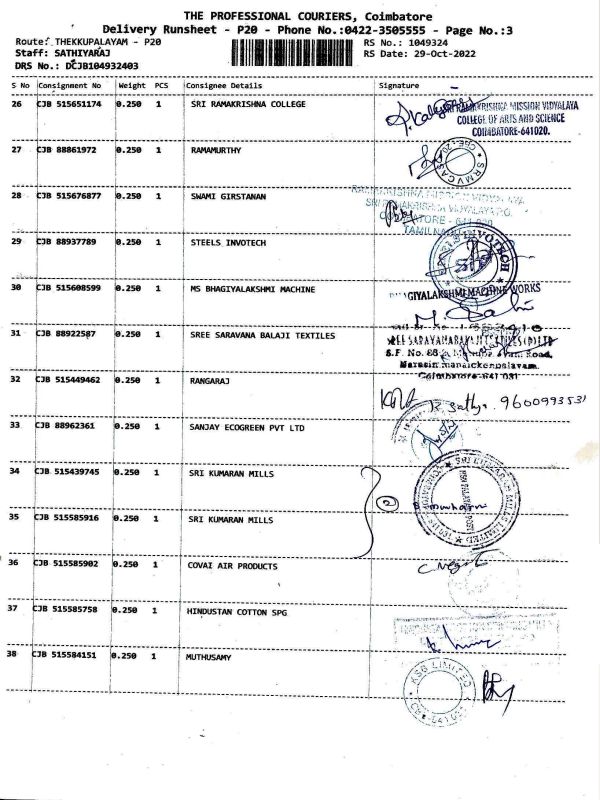 THE PROFESSIONAL COURIERS, Coimbatore
Delivery Runsheet - P20 - Phone No.:0422-3505555 - Page No.:3
Route: THEKKUPALAYAM - P20
RS No.: 1049324
Staff: SATHIYARAJ
RS Date: 29-Oct-2022
DRS No.: DCJB104932403
S No Consignment No Weight PCS Consignee Details Signature
26 CJB 515651174 0.250 1 SRI RAMAKRISHNA COLLEGE
RAMAKRISHNA MISSION VIDYALAYA
COLLEGE OF ARTS AND SCIENCE
COIMBATORE-641020.
27 CJB 88861972 0.250 1 RAMAMURTHY
SRMVCAS
28 CJB 515676877 0.250 1 SWAMI GIRSTANAN
TAMILNADU
29 CJB 88937789 0.250 1 STEELS INVOTECH
INVOTECH
30 CJB 515608599 0.250 1 MS BHAGIYALAKSHMI MACHINE
BHAGIYALAKSHMI MACHINE WORKS
31 CJB 88922587 0.250 1 SREE SARAVANA BALAJI TEXTILES
32 CJB 515449462 0.250 1 RANGARAJ
R. Sathy. 9600993531
33 CJB 88962361 0.250 1 SANJAY ECOGREEN PVT LTD
34 CJB 515439745 0.250 1 SRI KUMARAN MILLS
2
SRI KUMARAN MILLS LIMITED
35 CJB 515585916 0.250 1 SRI KUMARAN MILLS
36 CJB 515585902 0.250 1 COVAI AIR PRODUCTS
37 CJB 515585758 0.250 1 HINDUSTAN COTTON SPG
38 CJB 515584151 0.250 1 MUTHUSAMY
KSB LIMITED